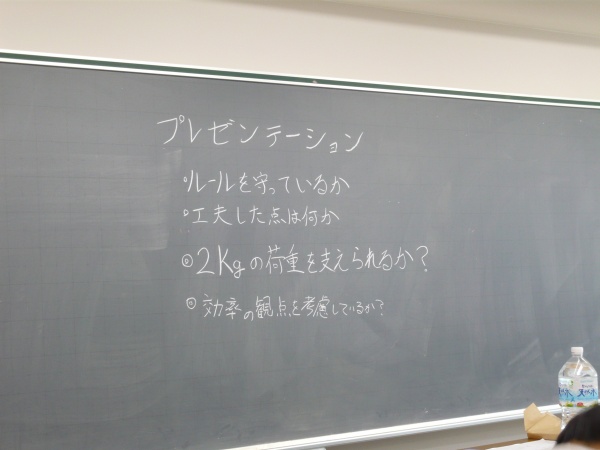 プレゼンテーション
・ルールを守っているか
・工夫した点は何か
◎2Kgの荷重を支えられるか?
◎効率の観点を考慮しているか?
天然水